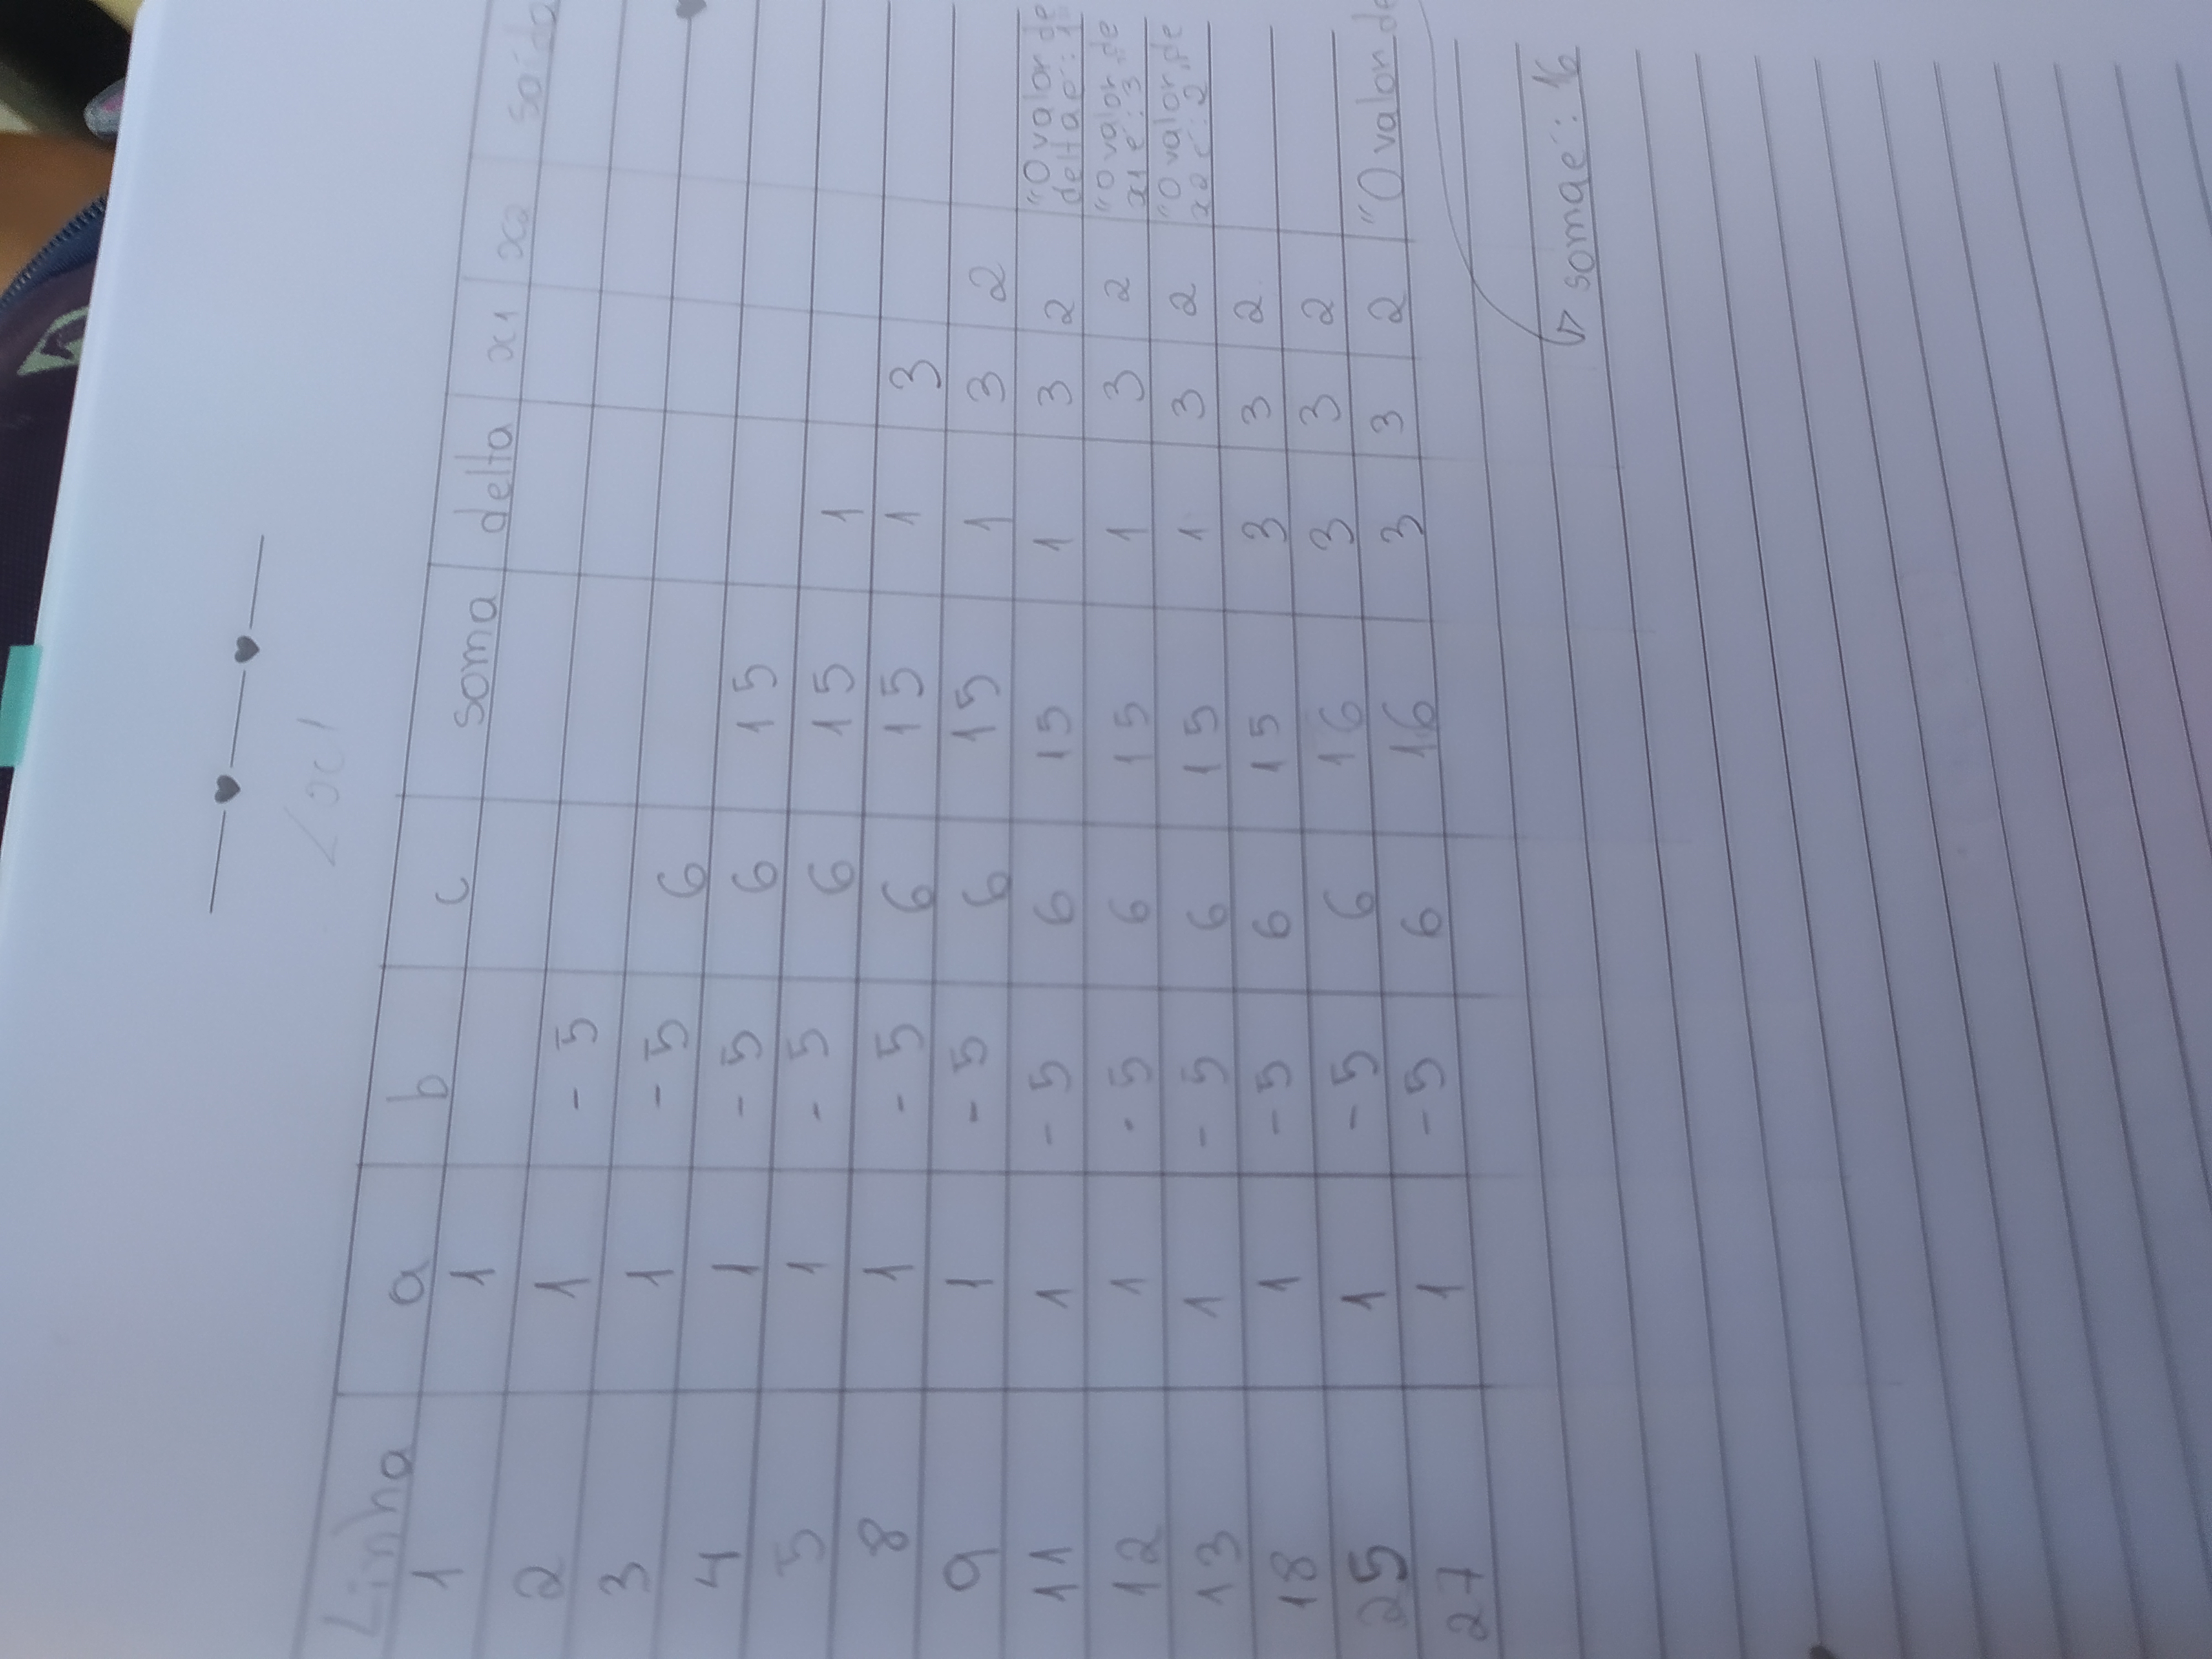 Linha a b c soma delta x1 x2 saída
1 1
2 1 - 5
3 1 - 5 6
4 1 - 5 6 15
5 1 - 5 6 15 1
8 1 - 5 6 15 1 3
9 1 - 5 6 15 1 3 2
11 1 - 5 6 15 1 3 2 "O valor de
delta é: 1
12 1 - 5 6 15 1 3 2 "O valor de
x1 é: 3"
13 1 - 5 6 15 1 3 2 "O valor de
x2 é: 2"
18 1 - 5 6 15 3 3 2
25 1 - 5 6 16 3 3 2
27 1 - 5 6 16 3 3 2 "O valor de
soma é: 16